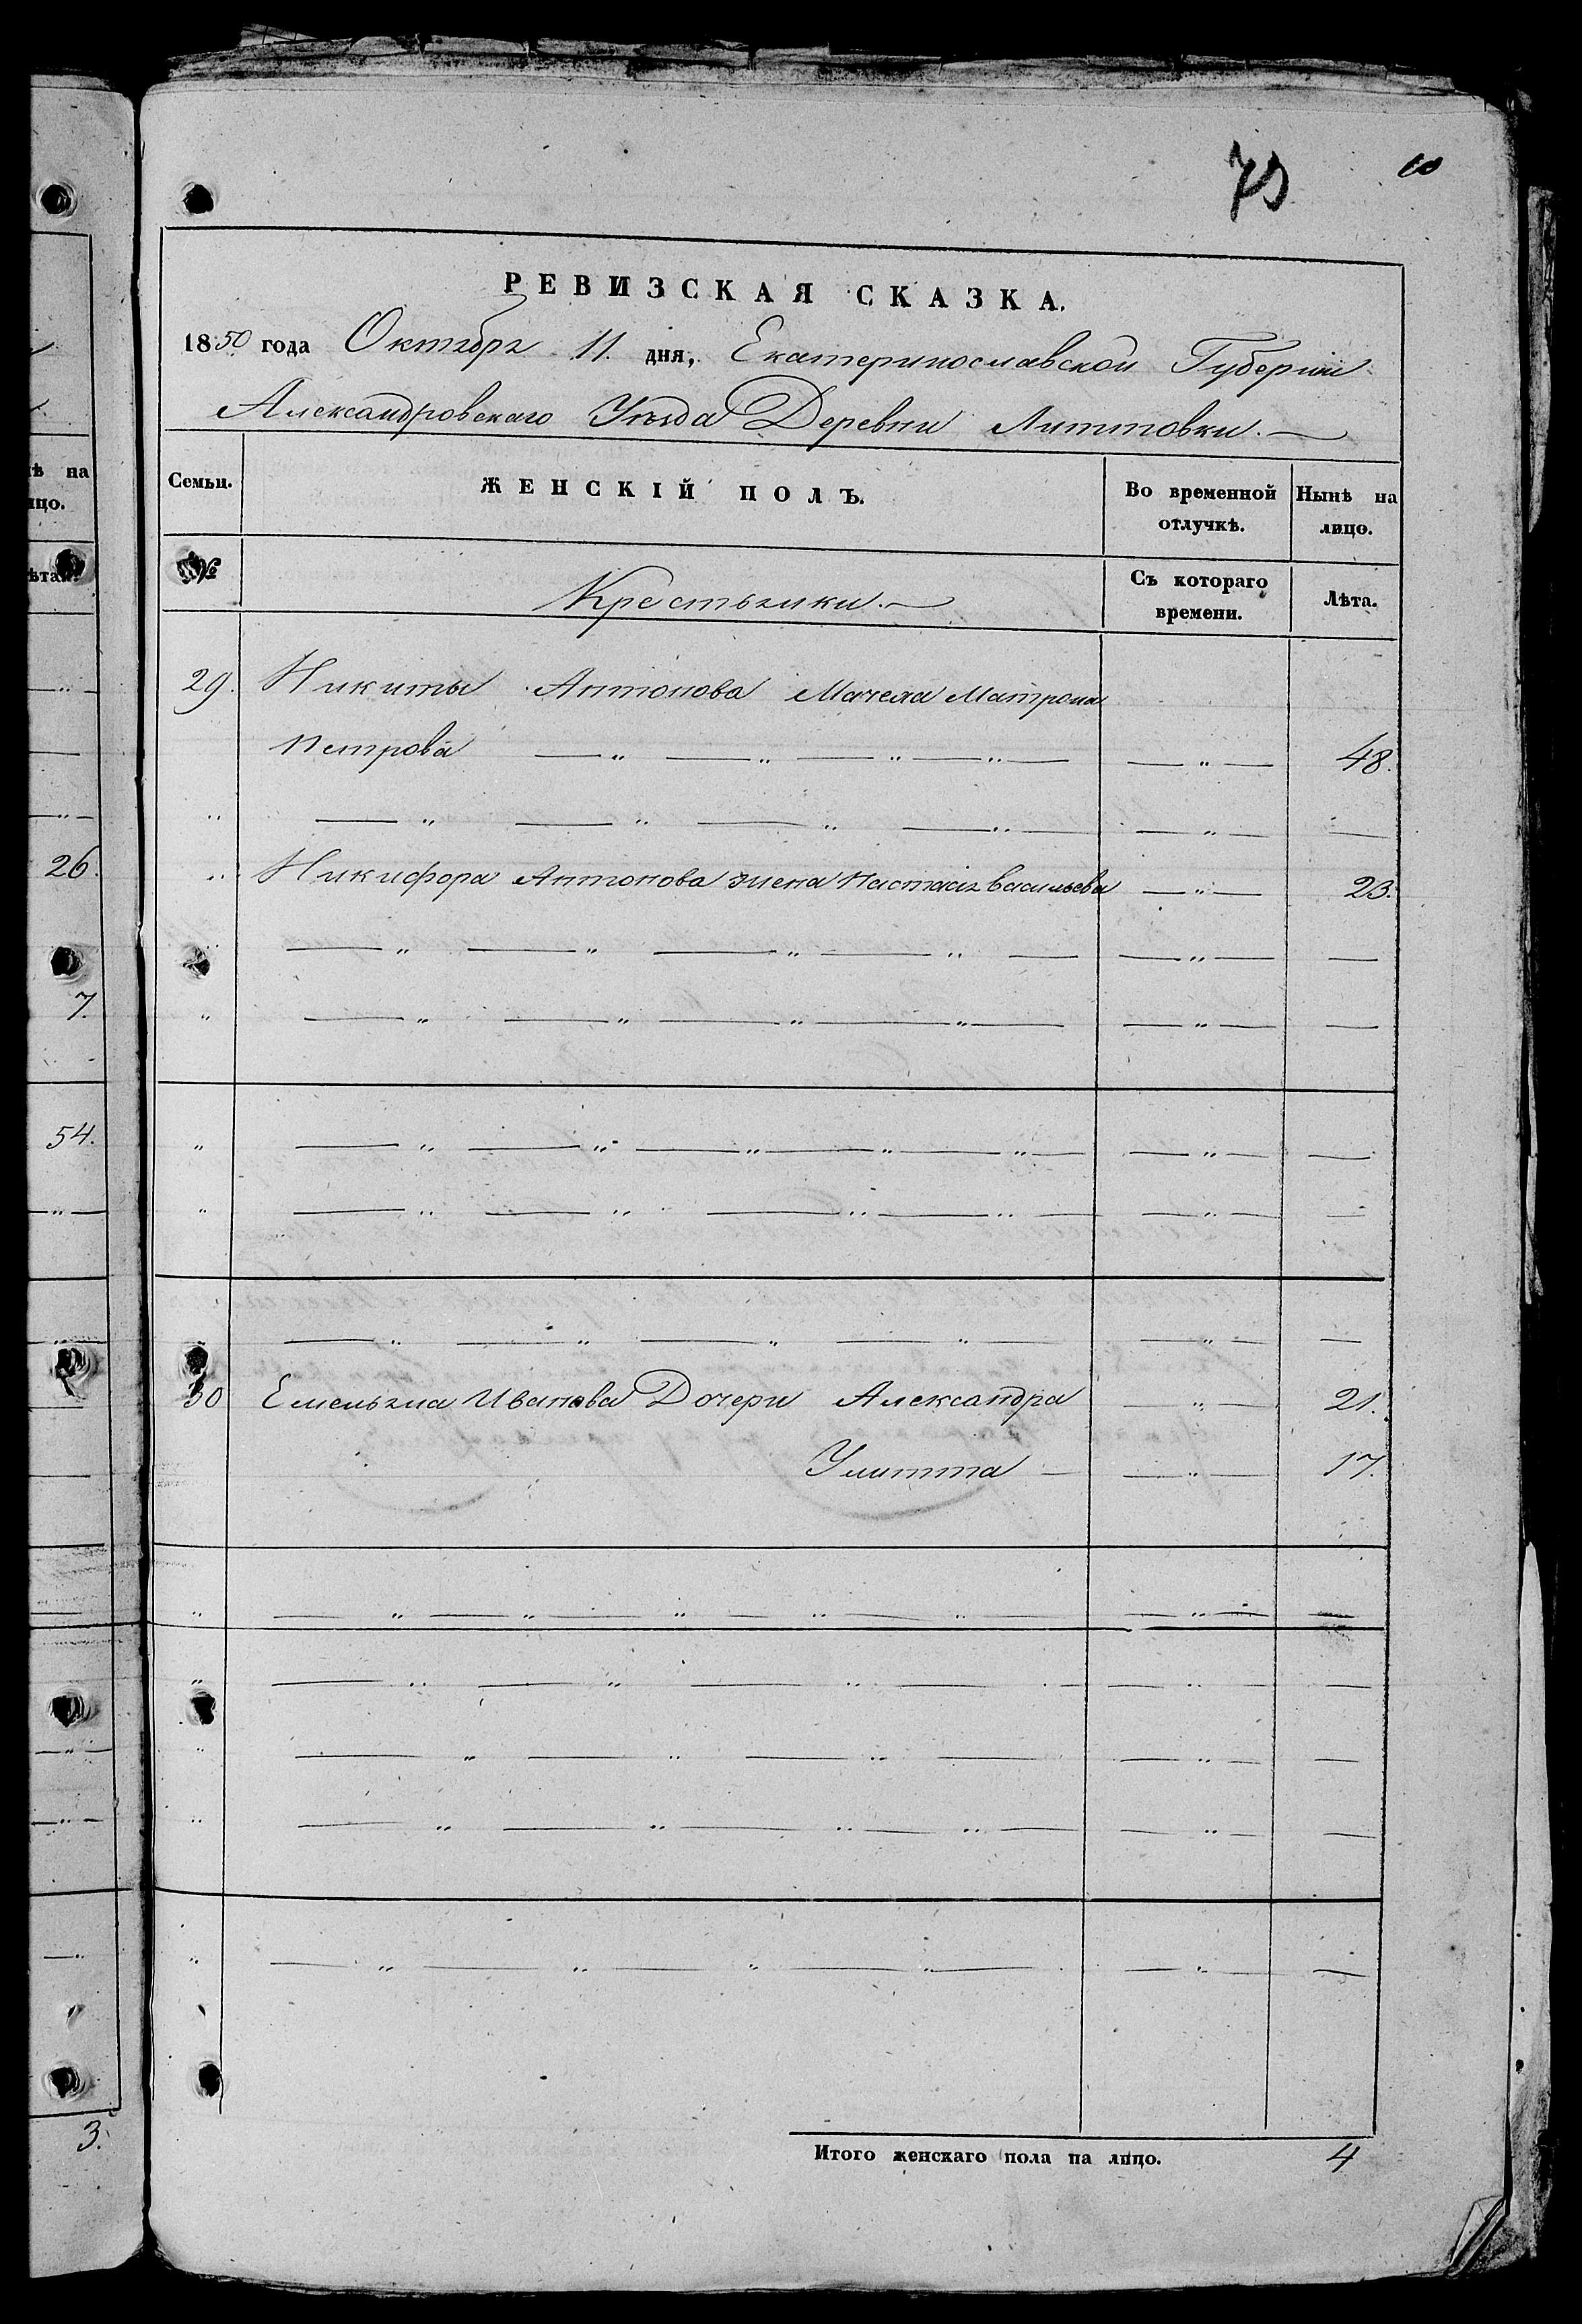 73 10
РЕВИЗСКАЯ СКАЗКА.
1850 года Октября 11. дня, Екатеринославской Губернии
Александровскаго Уѣзда Деревни Литтовки.
Семьи. ЖЕНСКІЙ ПОЛЪ. Во временной отлучкѣ. Нынѣ на лицо.
№ Крестьянки. Съ котораго времени. Лѣта.
29. Никиты Антонова Мачеха Матрона
Петрова — „ — „ — „ — „ — — „ — 48.
„ — „ — „ — „ — „ — — „ — —
„ Никифора Антонова жена Настасія Васильева — „ — 23.
„ — „ — „ — „ — „ — — „ — —
„ — „ — „ — „ — „ — — „ — —
„ — „ — „ — „ — „ — „ — — „ — —
„ — „ — „ — „ — „ — — „ — —
„ — „ — „ — „ — „ — — „ — —
30 Емельяна Иванова Дочери Александра — „ — 21.
Улитта — — „ — 17.
„ — „ — „ — „ — „ — „ — — „ — —
„ — „ — „ — „ — — „ — —
„ — „ — „ — „ — — „ — —
„ — „ — „ — „ — „ — — „ — —
„ — „ — „ — „ — „ — — „ — —
Итого женскаго пола на лицо. 4
ѣ на
ицо.
ѣта.
26.
7.
54.
3.